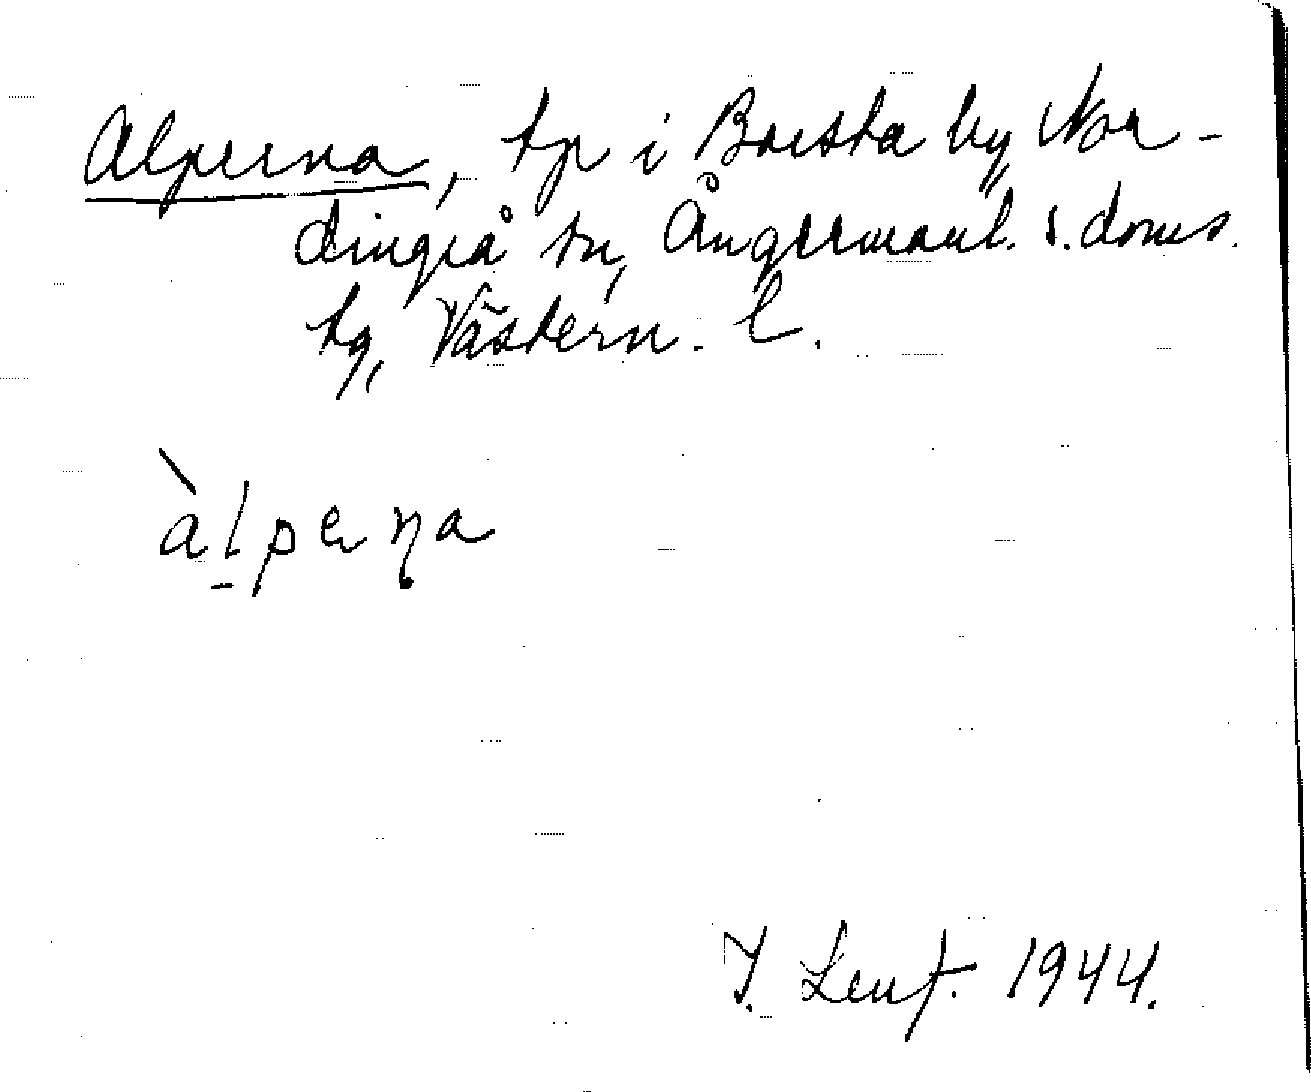 Alperna, tp i Barsta by Nor-
dingrå sn, Ångermanl. s. doms.
tg, Västern. l.
àlperna
J. Lenf. 1944.